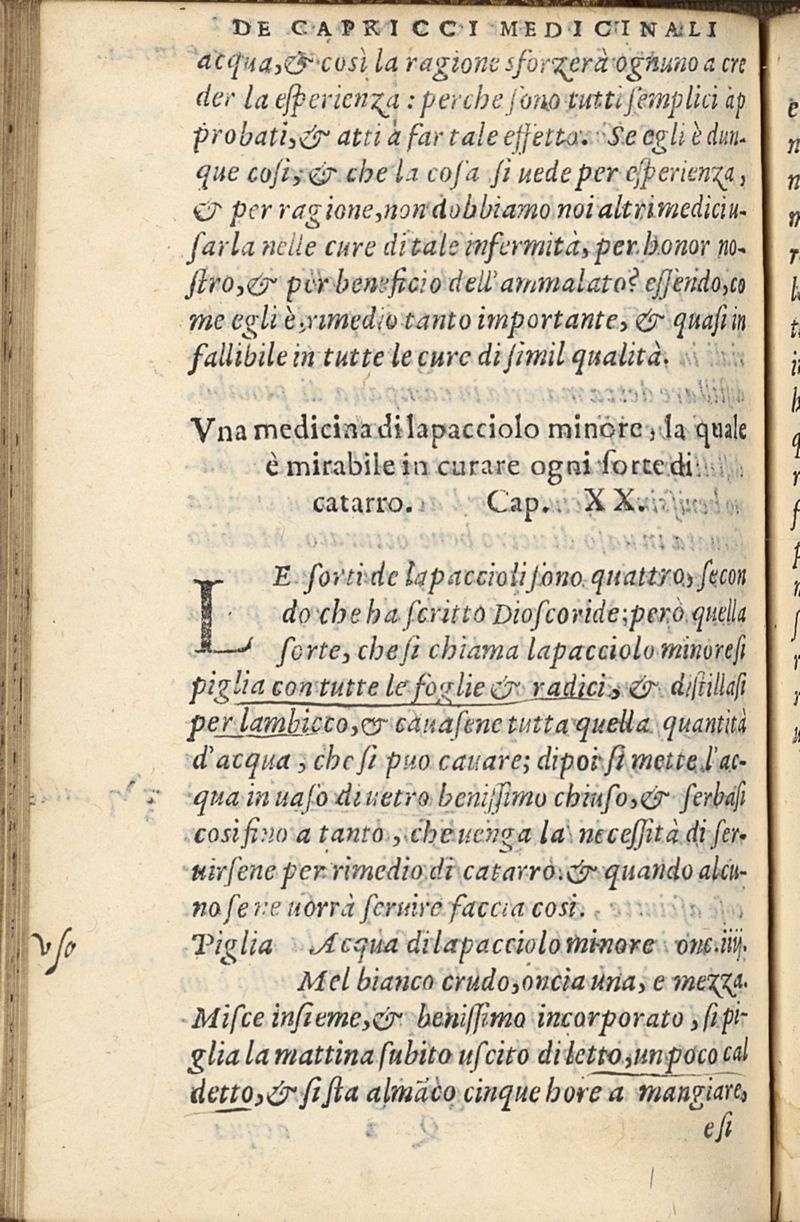 DE CAPRICCI MEDICINALI
acqua, & così la ragione sforzerà ognuno a cre
der la esperienza : perche sono tutti semplici ap
probati, & atti à far tale effetto. Se egli è dun-
que cosi, & che la cosa si uede per esperienza,
& per ragione, non dobbiamo noi altri medici u-
sarla nelle cure di tale infermità, per honor no-
stro, & per beneficio dell'ammalato? essendo, co
me egli è, rimedio tanto importante, & quasi in
fallibile in tutte le cure di simil qualità.
Vna medicina di lapacciolo minore, la quale
è mirabile in curare ogni sorte di
catarro. Cap. XX.
LE sorti de lapaccioli sono quattro, secon
do che ha scritto Dioscoride; però quella
sorte, che si chiama lapacciolo minore si
piglia con tutte le foglie & radici, & distillasi
per lambicco, & cauasene tutta quella quantità
d'acqua, che si puo cauare; dipoi si mette l'ac-
qua in uaso di uetro benissimo chiuso, & serbasi
cosi fino a tanto, che uenga la necessità di ser-
uirsene per rimedio di catarro. & quando alcu-
no se ne uorrà seruire faccia così.
uso
Piglia Acqua di lapacciolo minore onc. iiij.
Mel bianco crudo, oncia una, e mezza.
Misce insieme, & benissimo incorporato, si pi-
glia la mattina subito uscito di letto, un poco cal
detto, & si sta almāco cinque hore a mangiare,
e si